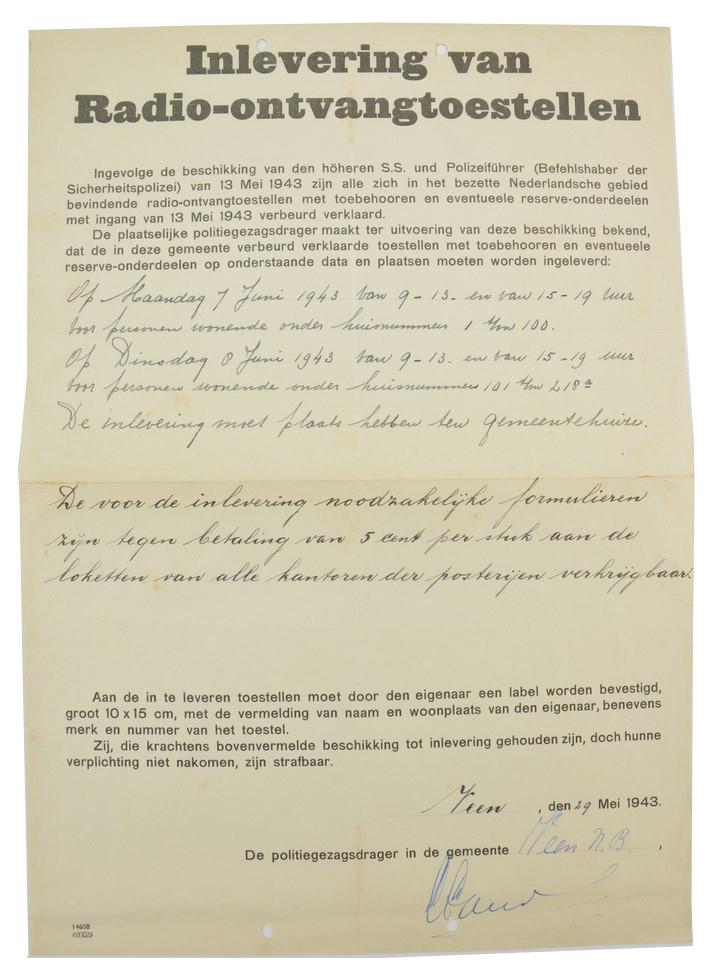 Inlevering van
Radio-ontvangtoestellen
Ingevolge de beschikking van den höheren S.S. und Polizeiführer (Befehlshaber der
Sicherheitspolizei) van 13 Mei 1943 zijn alle zich in het bezette Nederlandsche gebied
bevindende radio-ontvangtoestellen met toebehooren en eventueele reserve-onderdeelen
met ingang van 13 Mei 1943 verbeurd verklaard.
De plaatselijke politiegezagsdrager maakt ter uitvoering van deze beschikking bekend,
dat de in deze gemeente verbeurd verklaarde toestellen met toebehooren en eventueele
reserve-onderdeelen op onderstaande data en plaatsen moeten worden ingeleverd:
Op Maandag 7 Juni 1943 van 9-13- en van 15-19 uur
voor personen wonende onder huisnummers 1 t/m 100.
Op Dinsdag 8 Juni 1943 van 9-13- en van 15-19 uur
voor personen wonende onder huisnummers 101 t/m 218a
De inlevering moet plaats hebben ten gemeentehuize.
De voor de inlevering noodzakelijke formulieren
zijn tegen betaling van 5 cent per stuk aan de
loketten van alle kantoren der posterijen verkrijgbaar.
Aan de in te leveren toestellen moet door den eigenaar een label worden bevestigd,
groot 10 x 15 cm, met de vermelding van naam en woonplaats van den eigenaar, benevens
merk en nummer van het toestel.
Zij, die krachtens bovenvermelde beschikking tot inlevering gehouden zijn, doch hunne
verplichting niet nakomen, zijn strafbaar.
Veen, den 29 Mei 1943.
De politiegezagsdrager in de gemeente Veen N.B.
14608